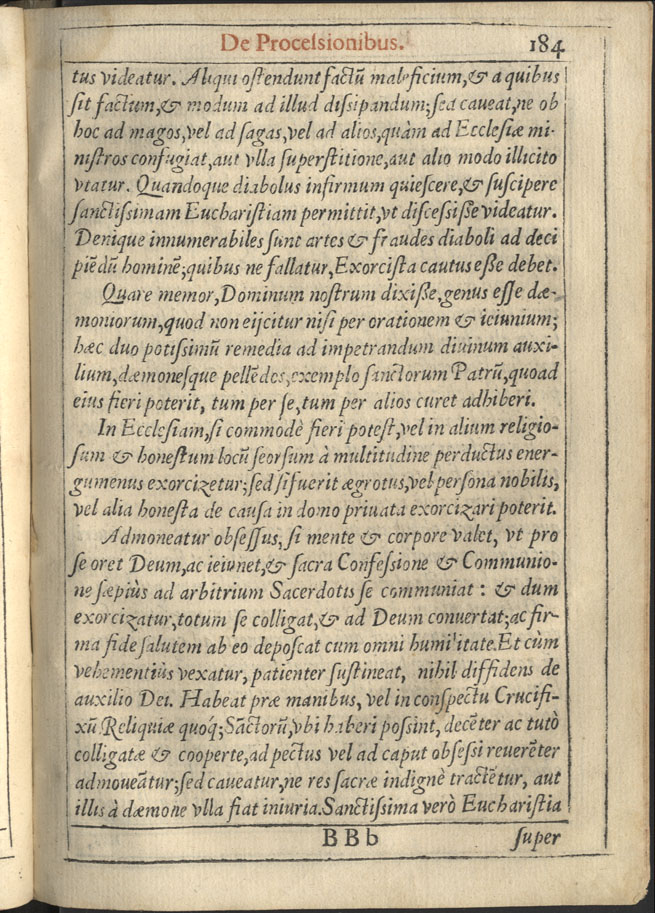 De Proceſsionibus. 184
tus videatur. Aliqui oſtendunt factũ maleficium, & a quibus
ſit factum, & modum ad illud diſsipandum; ſed caueat, ne ob
hoc ad magos, vel ad ſagas, vel ad alios, quàm ad Eccleſiæ mi-
niſtros confugiat, aut vlla ſuperſtitione, aut alio modo illicito
vtatur. Quandoque diabolus infirmum quieſcere, & ſuſcipere
ſanctiſsimam Euchariſtiam permittit, vt diſceſsiſſe videatur.
Denique innumerabiles ſunt artes & fraudes diaboli ad deci
piẽdũ hominẽ; quibus ne fallatur, Exorciſta cautus eſſe debet.
Quare memor, Dominum noſtrum dixiſſe, genus eſſe dæ-
moniorum, quod non eijcitur niſi per orationem & ieiunium;
hæc duo potiſsimũ remedia ad impetrandum diuinum auxi-
lium, dæmoneſque pellẽdos, exemplo ſanctorum Patrũ, quoad
eius fieri poterit, tum per ſe, tum per alios curet adhiberi.
In Eccleſiam, ſi commodè fieri poteſt, vel in alium religio-
ſum & honeſtum locũ ſeorſum à multitudine perductus ener-
gumenus exorcizetur; ſed ſi fuerit ægrotus, vel perſona nobilis,
vel alia honeſta de cauſa in domo priuata exorcizari poterit.
Admoneatur obſeſſus, ſi mente & corpore valet, vt pro
ſe oret Deum, ac ieiunet, & ſacra Confeſsione & Communio-
ne ſæpiùs ad arbitrium Sacerdotis ſe communiat : & dum
exorcizatur, totum ſe colligat, & ad Deum conuertat; ac fir-
ma fide ſalutem ab eo depoſcat cum omni humilitate. Et cùm
vehementiùs vexatur, patienter ſuſtineat, nihil diffidens de
auxilio Dei. Habeat præ manibus, vel in conſpectu Crucifi-
xũ Reliquiæ quoq́; Sãctorũ, vbi haberi poſsint, decẽter ac tutò
colligatæ & cooperte, ad pectus vel ad caput obſeſsi reuerẽter
admoueãtur; ſed caueatur, ne res ſacræ indignè tractẽtur, aut
illis à dæmone vlla fiat iniuria. Sanctiſsima verò Euchariſtia
BBb ſuper